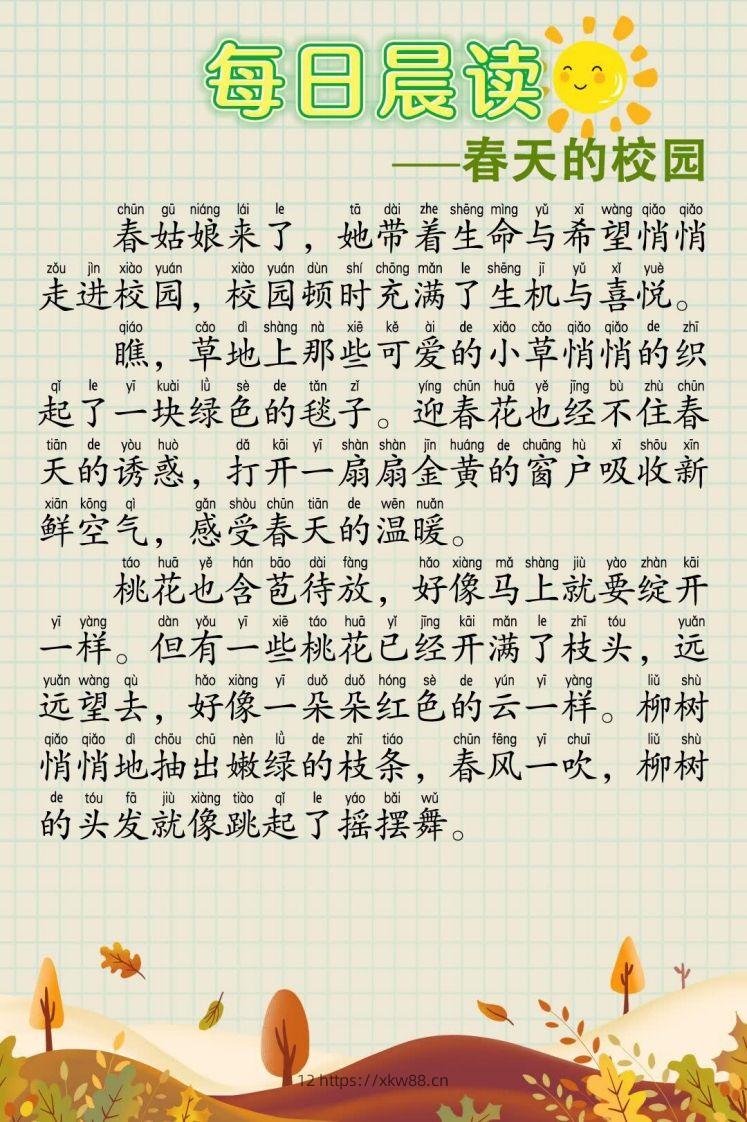 每日晨读
——春天的校园
chūn gū niáng lái le tā dài zhe shēng mìng yǔ xī wàng qiǎo qiǎo
春姑娘来了，她带着生命与希望悄悄
zǒu jìn xiào yuán xiào yuán dùn shí chōng mǎn le shēng jī yǔ xǐ yuè
走进校园，校园顿时充满了生机与喜悦。
qiáo cǎo dì shàng nà xiē kě ài de xiǎo cǎo qiǎo qiǎo de zhī
瞧，草地上那些可爱的小草悄悄的织
qǐ le yī kuài lǜ sè de tǎn zǐ yíng chūn huā yě jīng bù zhù chūn
起了一块绿色的毯子。迎春花也经不住春
tiān de yòu huò dǎ kāi yī shàn shàn jīn huáng de chuāng hù xī shōu xīn
天的诱惑，打开一扇扇金黄的窗户吸收新
xiān kōng qì gǎn shòu chūn tiān de wēn nuǎn
鲜空气，感受春天的温暖。
táo huā yě hán bāo dài fàng hǎo xiàng mǎ shàng jiù yào zhàn kāi
桃花也含苞待放，好像马上就要绽开
yī yàng dàn yǒu yī xiē táo huā yǐ jīng kāi mǎn le zhī tóu yuǎn
一样。但有一些桃花已经开满了枝头，远
yuǎn wàng qù hǎo xiàng yī duǒ duǒ hóng sè de yún yī yàng liǔ shù
远望去，好像一朵朵红色的云一样。柳树
qiǎo qiǎo dì chōu chū nèn lǜ de zhī tiáo chūn fēng yī chuī liǔ shù
悄悄地抽出嫩绿的枝条，春风一吹，柳树
de tóu fā jiù xiàng tiào qǐ le yáo bǎi wǔ
的头发就像跳起了摇摆舞。
12 https://xkw88.cn